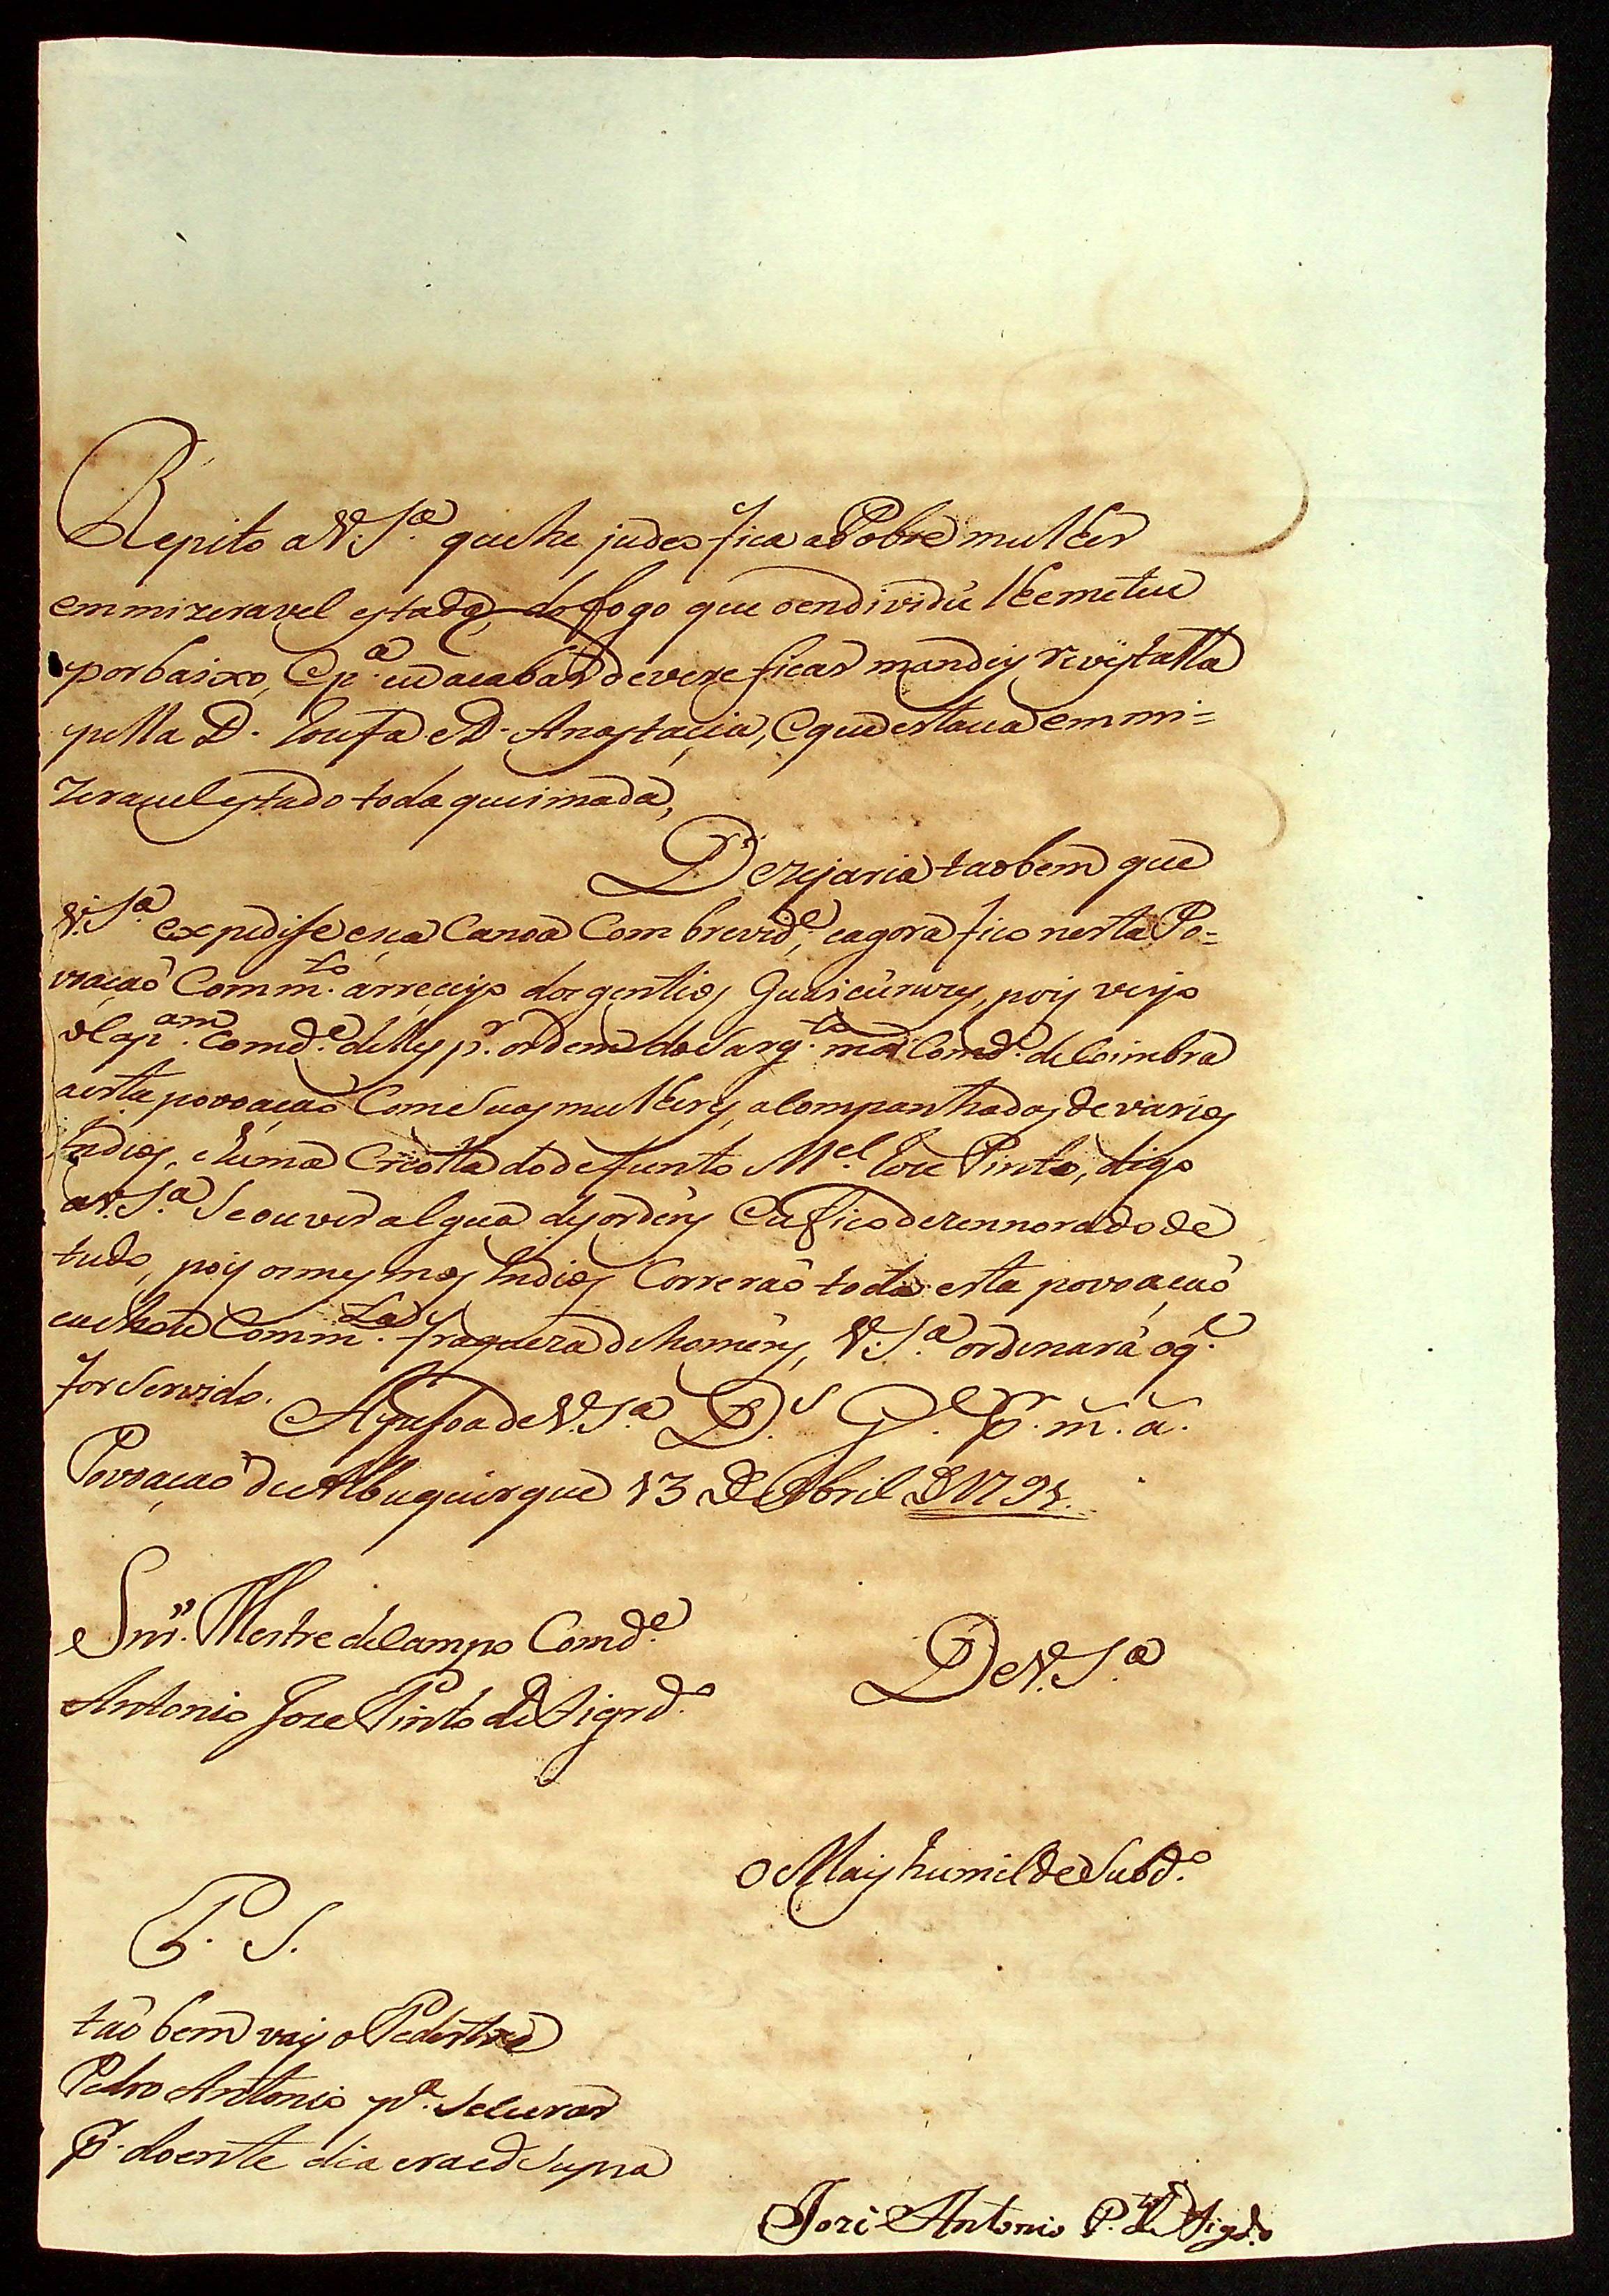 Repito a V. S.ª que he judeo fica a Pobre mulher
em mizeravel estado, do fogo que o endividu lhe meteu
por baixo, e p.ª eu acabar de vereficar mandey revystalla
pella D. Jozefa e D. Anastacia, e que estava em mi=
zeravel estado toda queimada,
Dezejaria taobem que
V. S.ª expedise esa Canoa Com brevid.e, e agora fico nesta Po=
voaçaõ Com m.to arreceyo dos gentios Guaicúrury, poiy veyo
o Cap.am Comd.e delles p.r ordem do Sarg.to mór Comd.e de Coimbra
a esta povoaçaõ Com Suas mulhery, acompanhados de varios
Indios, e huma Creolla do defunto M.el Joze Pinto, digo
a V. S.ª Se ouver algua desordeny eu fico dezennorado de
tudo, poiy os mesmos Indios Correraõ toda esta povoaçaõ
e acharaõ Com m.ta fraqueza de homeny, V. S.ª ordenará o q.e
for Servido.
A pesoa de V. S.ª D.s G.e p.r m. a.
Povoaçaõ de Albuquerque 13 de Abril de 1791.
Snr. Mestre de Campo Comd.e
Antonio Joze Pinto de Figrd.o
De V. S.ª
o Maiy humilde Subd.o
P. S.
taõ bem vay o Pedestre
Pedro Antonio p.ª Se curar
p.r doente dia era ed Supra
Jozé Antonio P.to de Figd.o